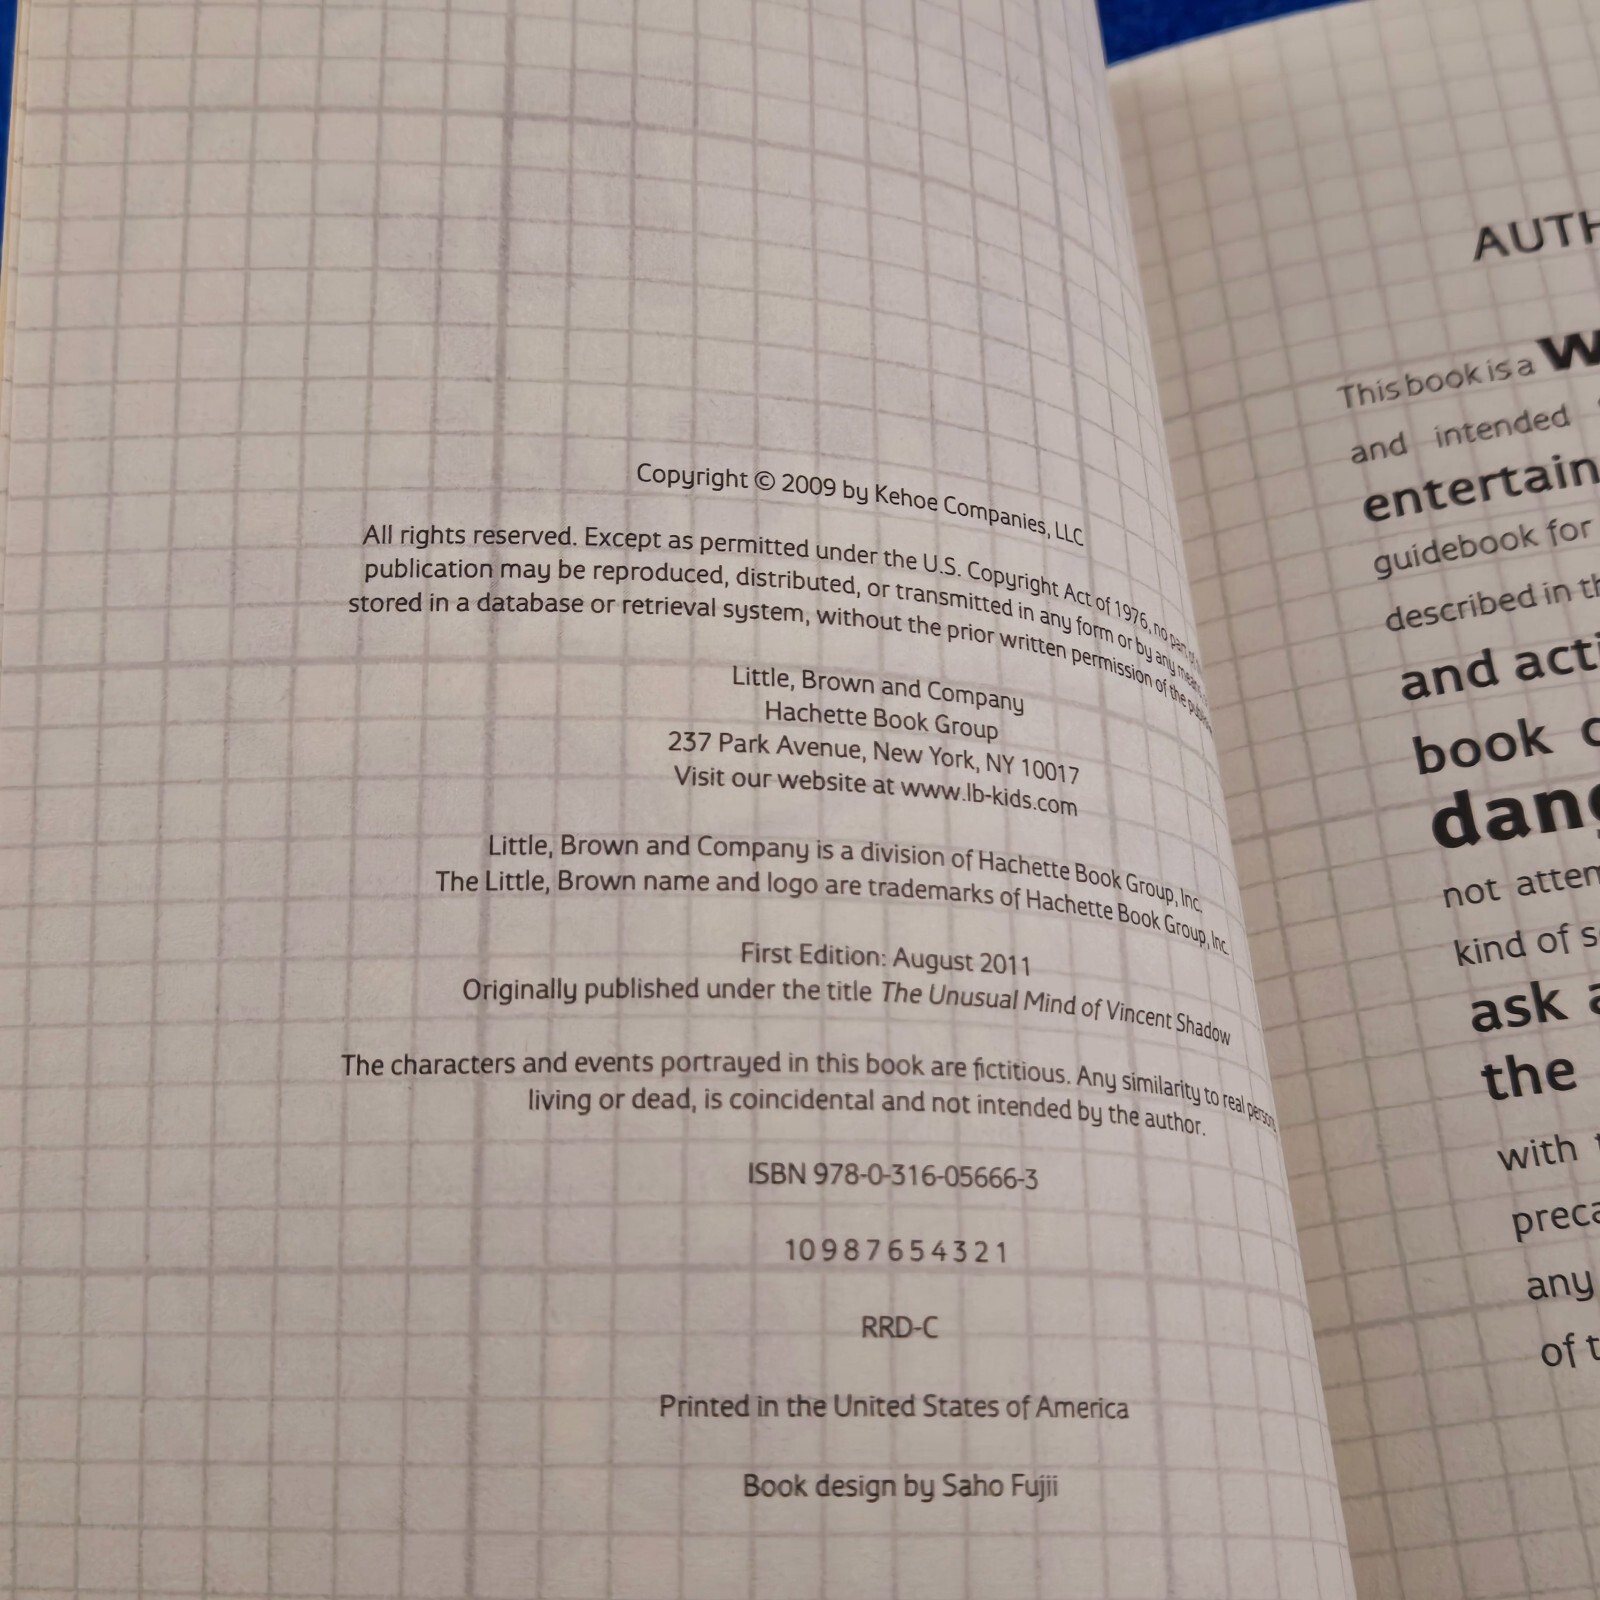 Copyright © 2009 by Kehoe Companies, LLC
All rights reserved. Except as permitted under the U.S. Copyright Act of 1976, no part of
publication may be reproduced, distributed, or transmitted in any form or by any means,
stored in a database or retrieval system, without the prior written permission of the
Little, Brown and Company
Hachette Book Group
237 Park Avenue, New York, NY 10017
Visit our website at www.lb-kids.com
Little, Brown and Company is a division of Hachette Book Group, Inc.
The Little, Brown name and logo are trademarks of Hachette Book Group, Inc.
First Edition: August 2011
Originally published under the title The Unusual Mind of Vincent Shadow
The characters and events portrayed in this book are fictitious. Any similarity to real persons,
living or dead, is coincidental and not intended by the author.
ISBN 978-0-316-05666-3
10 9 8 7 6 5 4 3 2 1
RRD-C
Printed in the United States of America
Book design by Saho Fujii
AUTH
This book is a w
and intended
entertain
guidebook for
described in th
and acti
book
dang
not attem
kind of s
ask a
the
with t
preca
any
of t